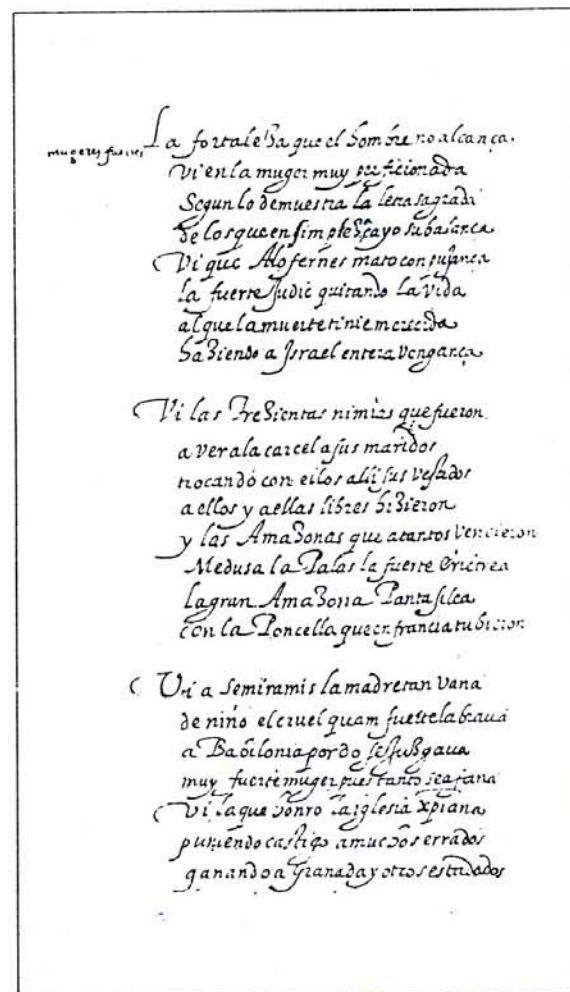 mugeres fuertes
La fortaleza que el hombre no alcança.
Vi en la muger muy perficionada
Segun lo demuestra la letra sagrada
de los que en simpleza
Vi que Alofernes mato con pujança
la fuerte Judic quitando la vida
al que la muerte tinie merecida
haziendo a Israel entera vengança
Vi las Trezientas nimizs que fueron
a ver a la carcel a sus maridos
trocando con ellos alli sus vestidos
a ellos y a ellas libres hizieron
y las Amazonas que a tantos vencieron
Medusa la Palas la fuerte Erictrea
la gran Amazona Pantasilea
con la Poncella que en francia tubieron
Vi a Semiramis la madre tan vana
de nino el cruel quam fuerte labrava
a Babilonia por do se juzgava
muy fuerte muger pues tanto se afana
Vi la que honro la iglesia xpiana
puniendo castigo a muchos errados
ganando a Granada y otros estados